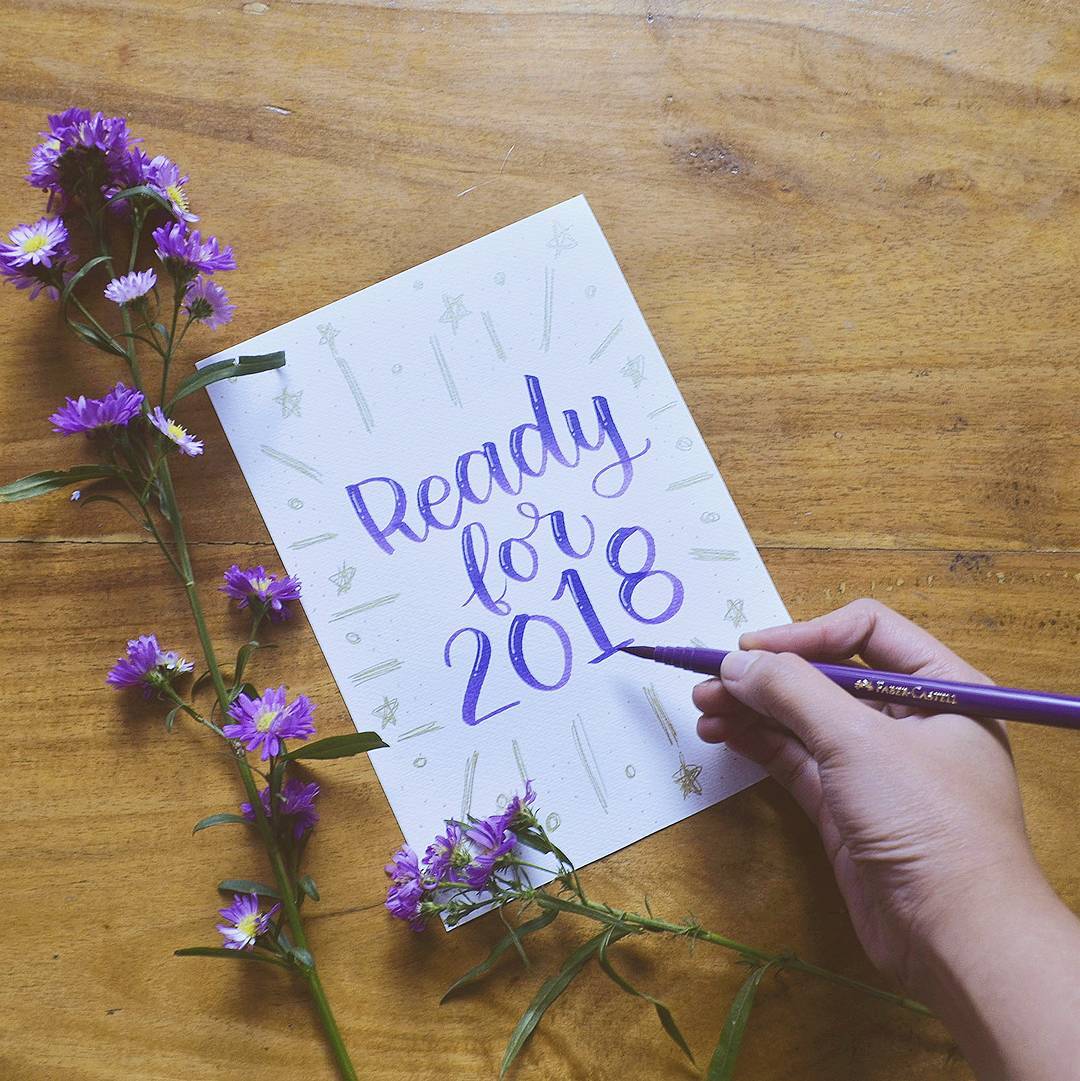 Ready
for
2018
FABER-CASTELL